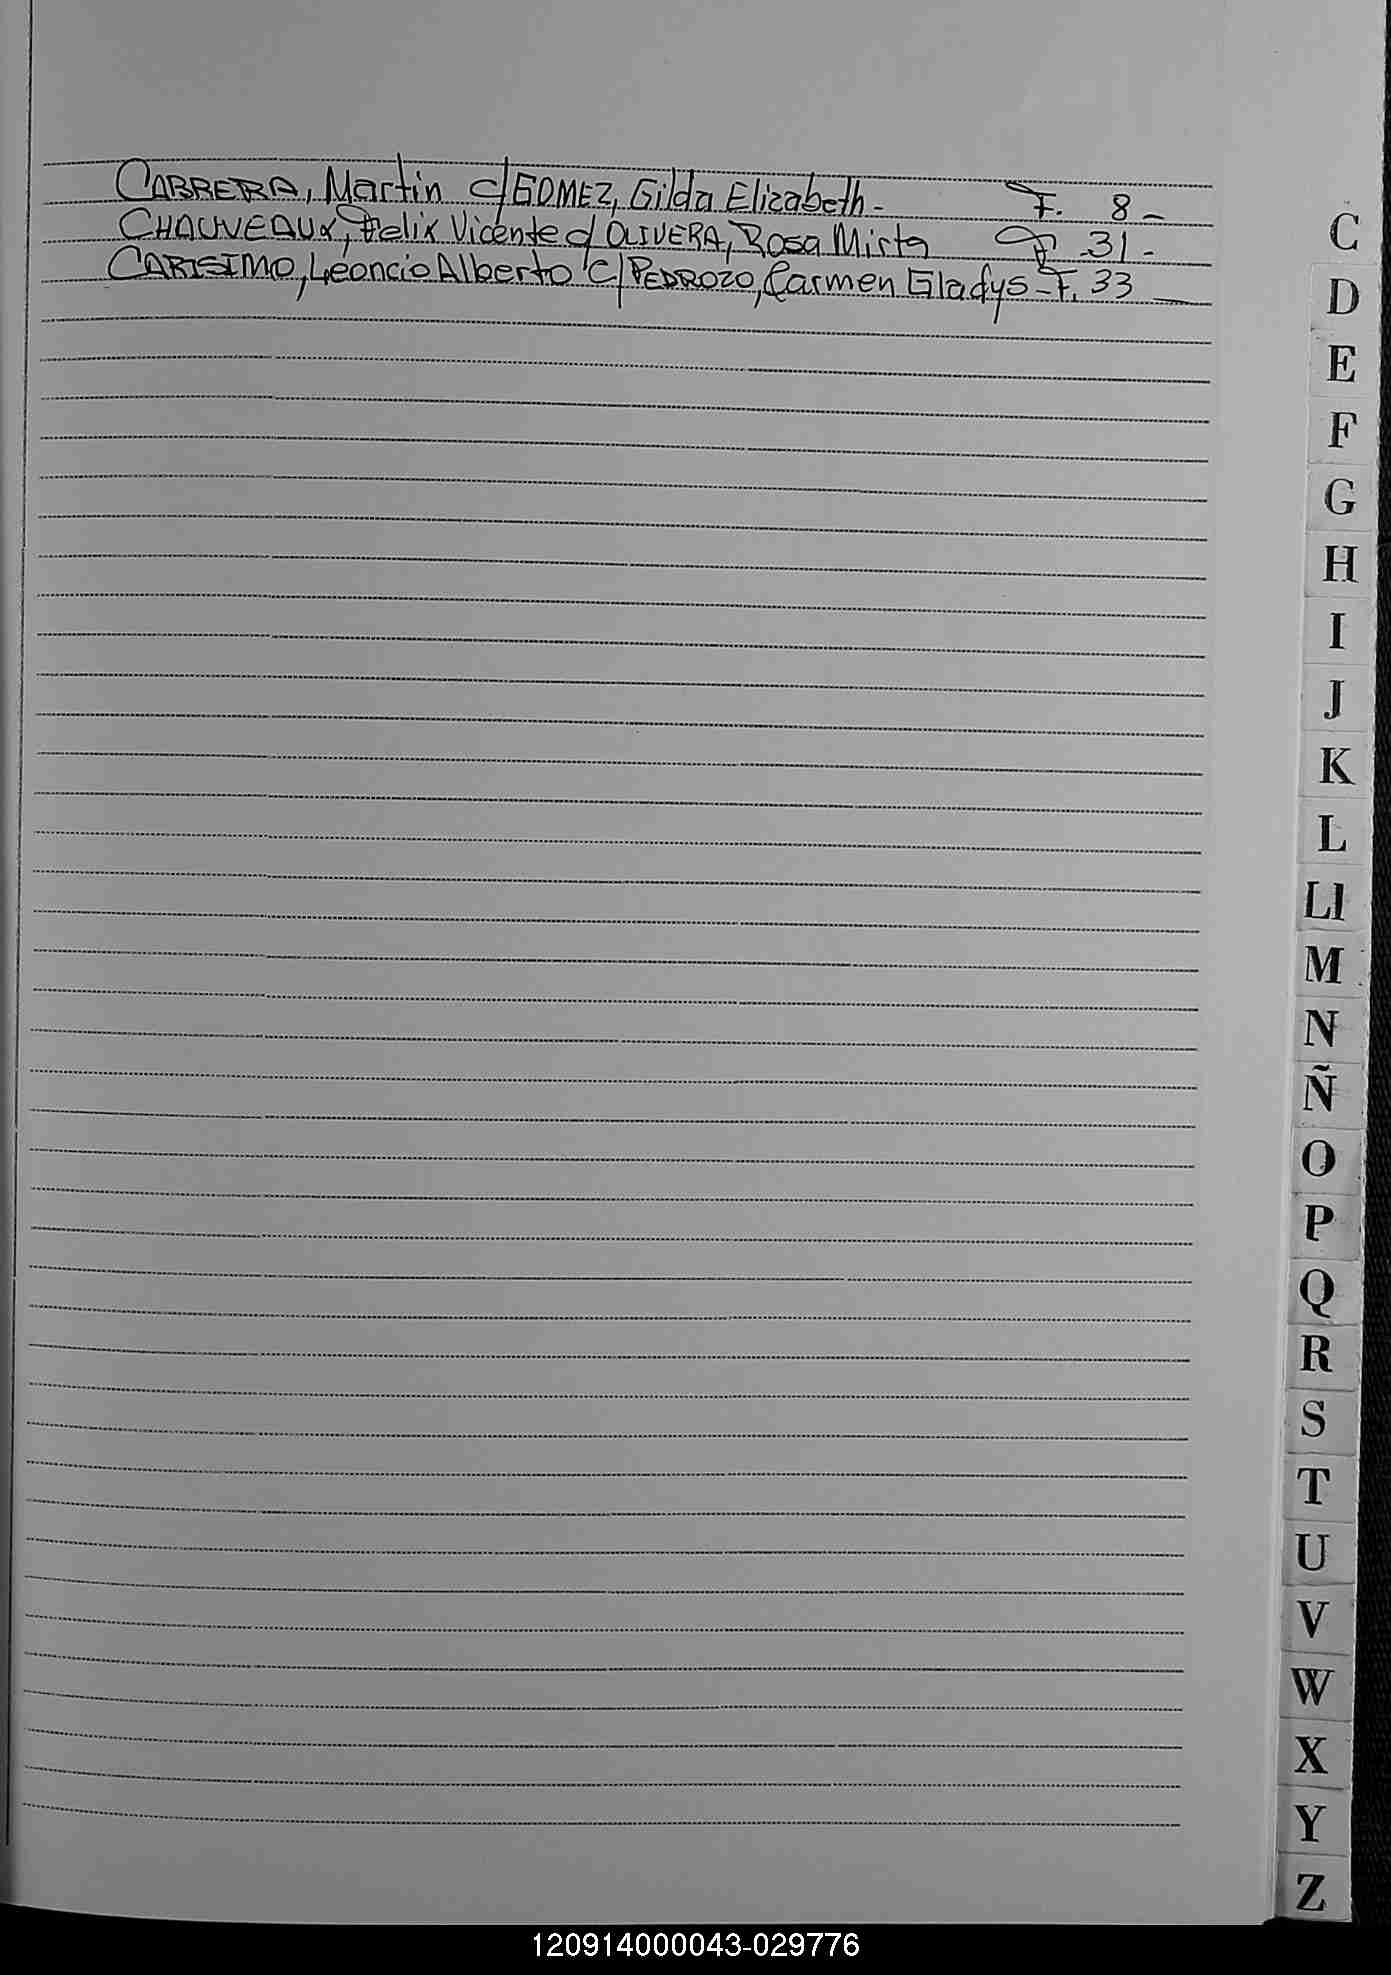 CABRERA, Martin c/ GOMEZ, Gilda Elizabeth - F. 8 -
CHAUVEAUX, Felix Vicente c/ OLIVERA, Rosa Mirta F. 31 -
CARISIMO, Leoncio Alberto c/ PEDROZO, Carmen Gladys - F. 33
C
D
E
F
G
H
I
J
K
L
Ll
M
N
Ñ
O
P
Q
R
S
T
U
V
W
X
Y
Z
120914000043-029776